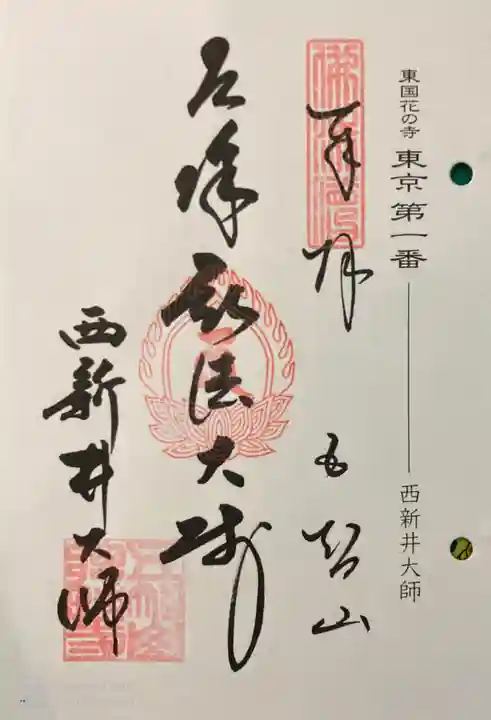 東国花の寺 東京 第一番 西新井大師
奉拜
五智山
厄除 弘法大師
西新井大師